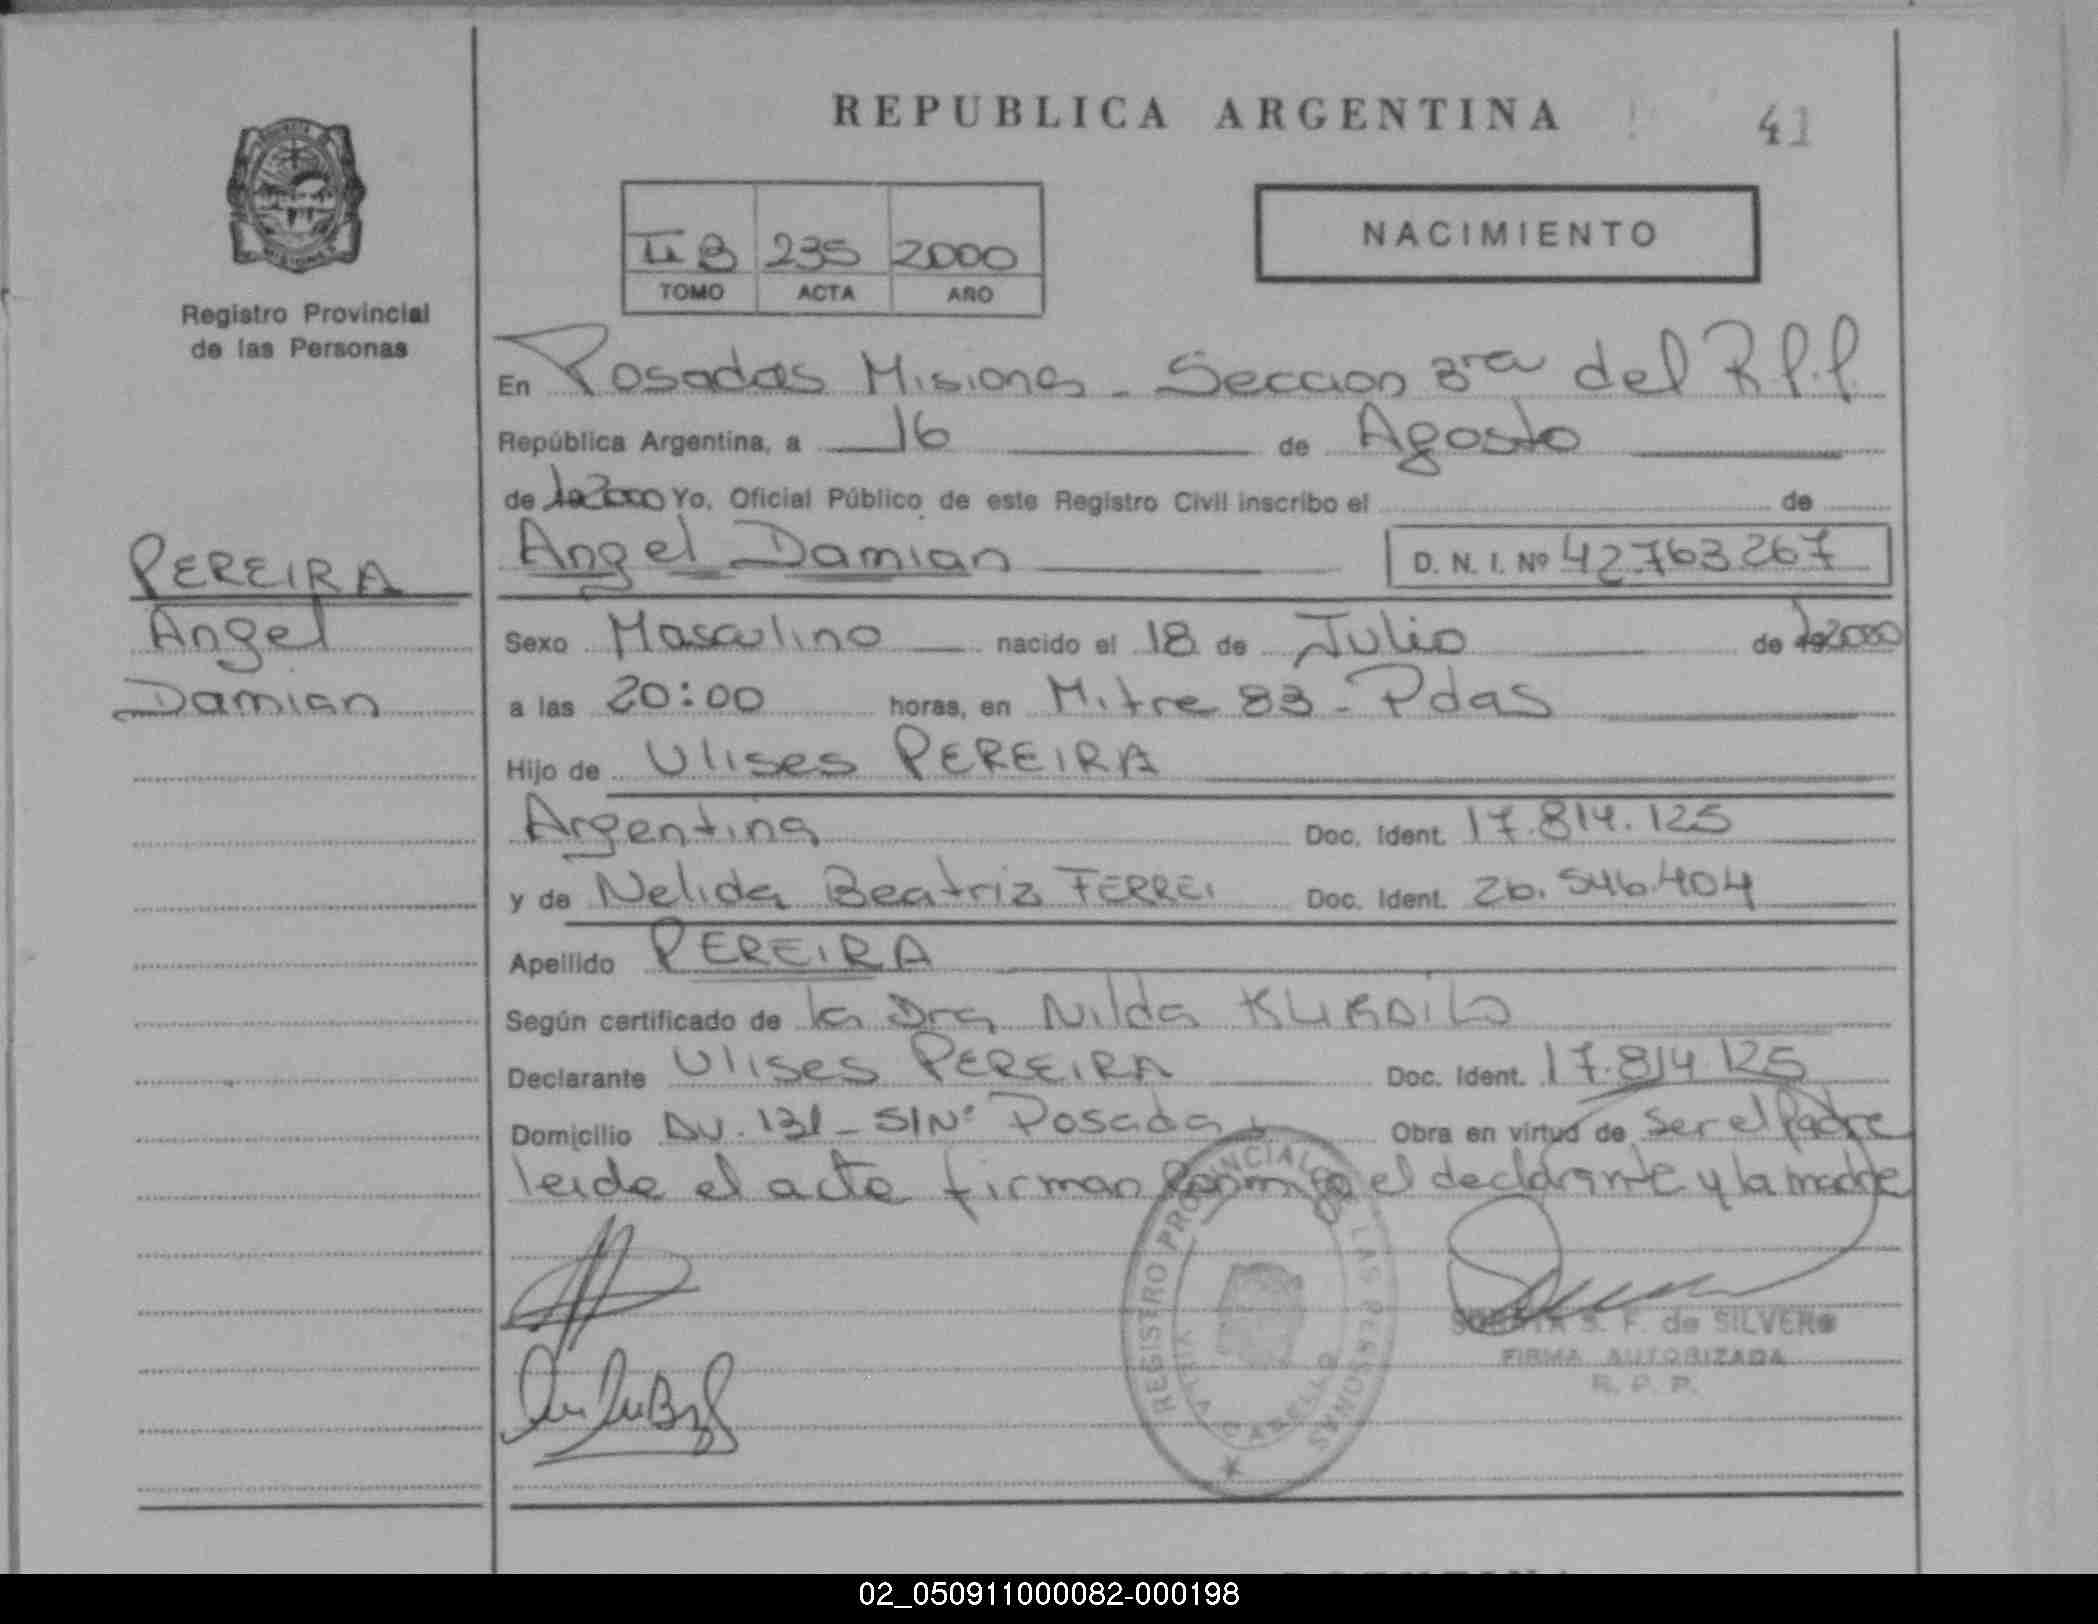 REPUBLICA ARGENTINA
41
II B 235 2000
TOMO ACTA AÑO
NACIMIENTO
Registro Provincial
de las Personas
En Posadas Misiones - Seccion 3ra del R.P.P.
República Argentina, a 16 de Agosto
de 2000 Yo, Oficial Público de este Registro Civil inscribo el de
Angel Damian D. N. I. Nº 42.763.267
PEREIRA
Angel
Damian
Sexo Masculino nacido el 18 de Julio de 2000
a las 20:00 horas, en Mitre 83 - Pdas
Hijo de Ulises PEREIRA
Argentina Doc. Ident. 17.814.125
y de Nelida Beatriz FERREI Doc. Ident. 26.546.404
Apellido PEREIRA
Según certificado de la Dra Nilda
Declarante Ulises PEREIRA Doc. Ident. 17.814.125
Domicilio Av. 131 - S/Nº Posadas Obra en virtud de ser el Padre
leida el acta firman conmigo el declarante y la madre
REGISTRO PROVINCIAL DE LAS PERSONAS
VILLA CABELLO
S. F. de SILVERO
FIRMA AUTORIZADA
R. P. P.
02_050911000082-000198